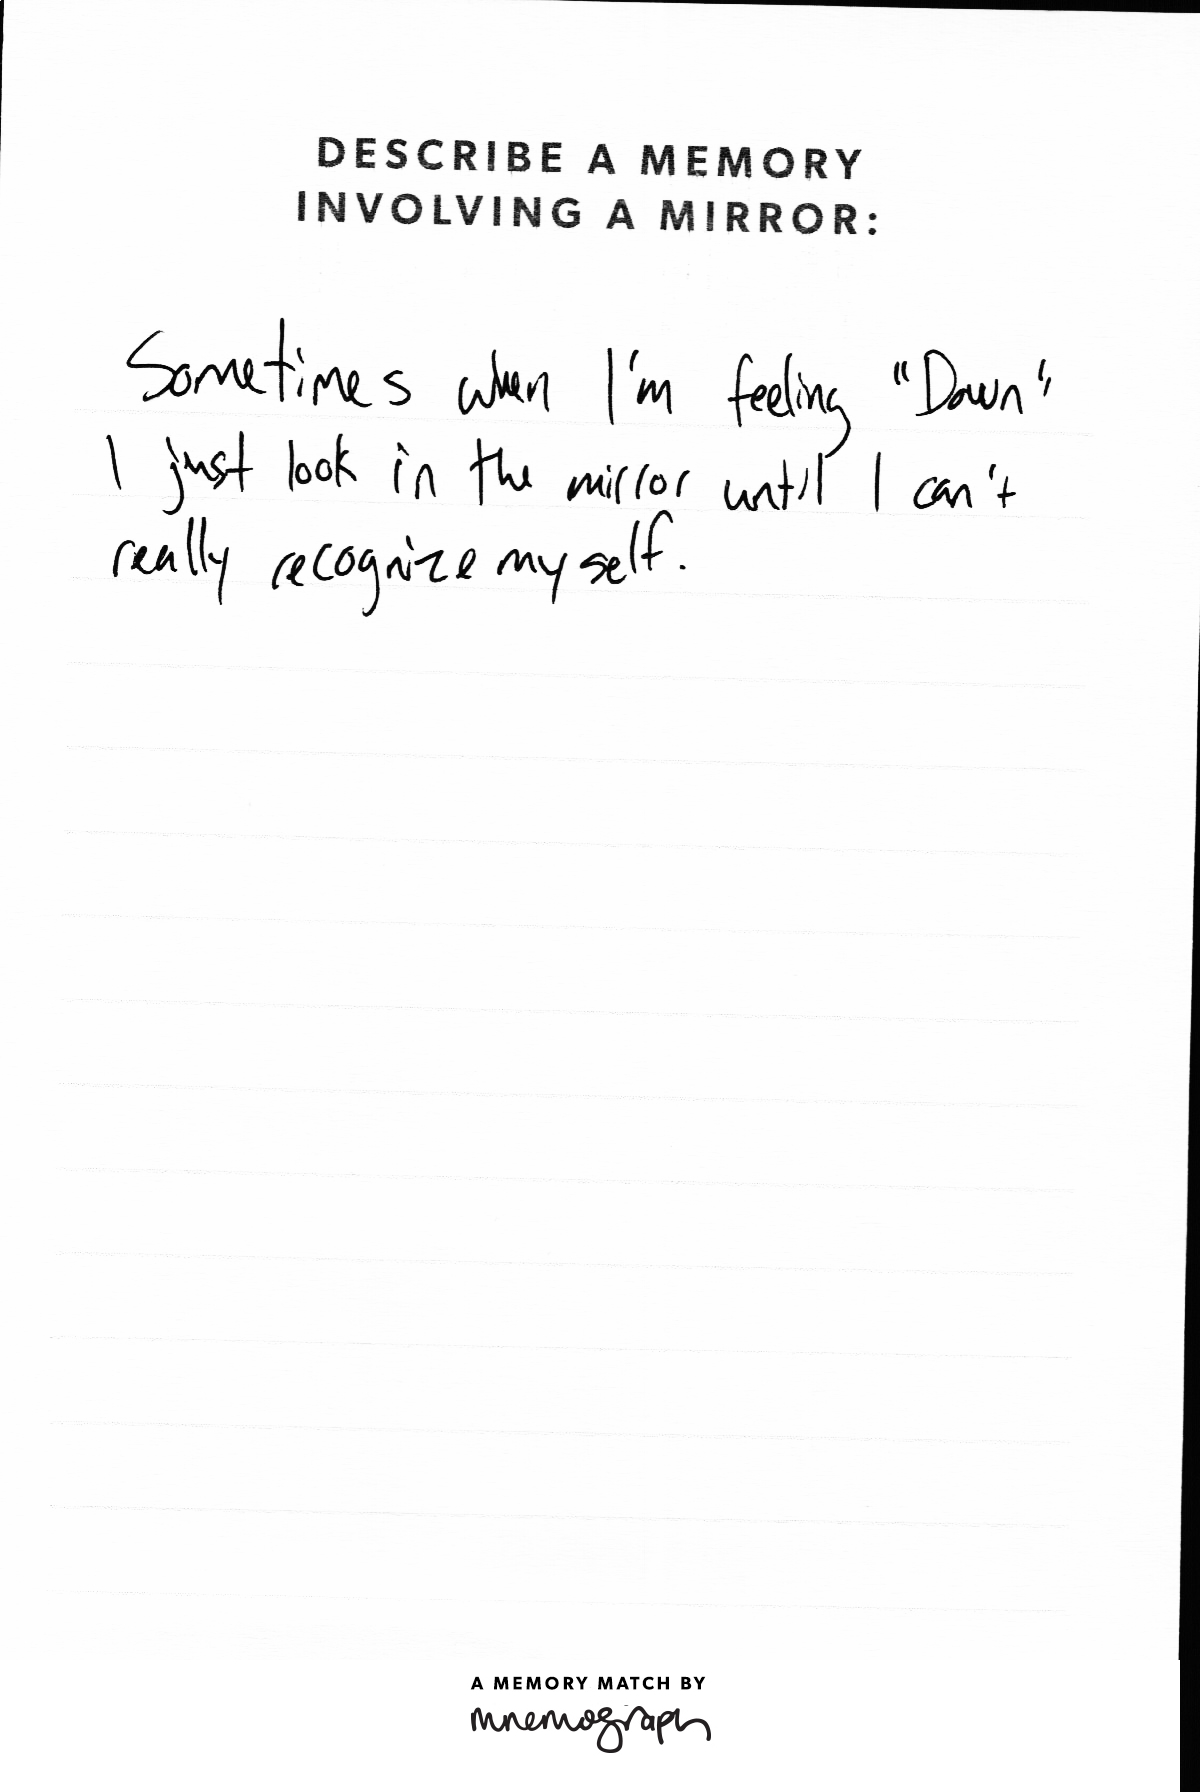 DESCRIBE A MEMORY
INVOLVING A MIRROR:
Sometimes when I'm feeling "Down"
I just look in the mirror until I can't
really recognize myself.
A MEMORY MATCH BY
mnemograph